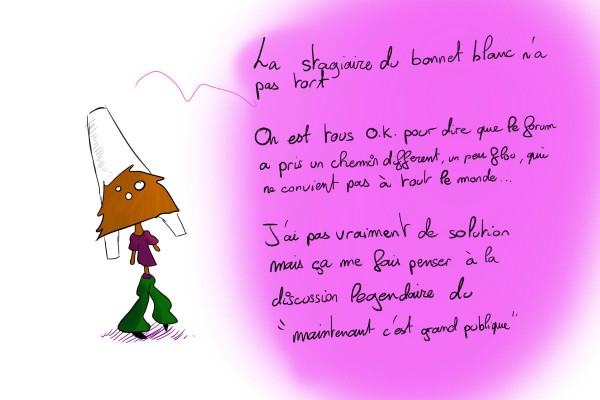 La stagiaire du bonnet blanc n'a
pas tort
On est tous O.K. pour dire que le forum
a pris un chemin différent, un peu flou, qui
ne convient pas à tout le monde...
J'ai pas vraiment de solution
mais ça me fais penser à la
discussion legendaire du
"maintenant c'est grand publique"